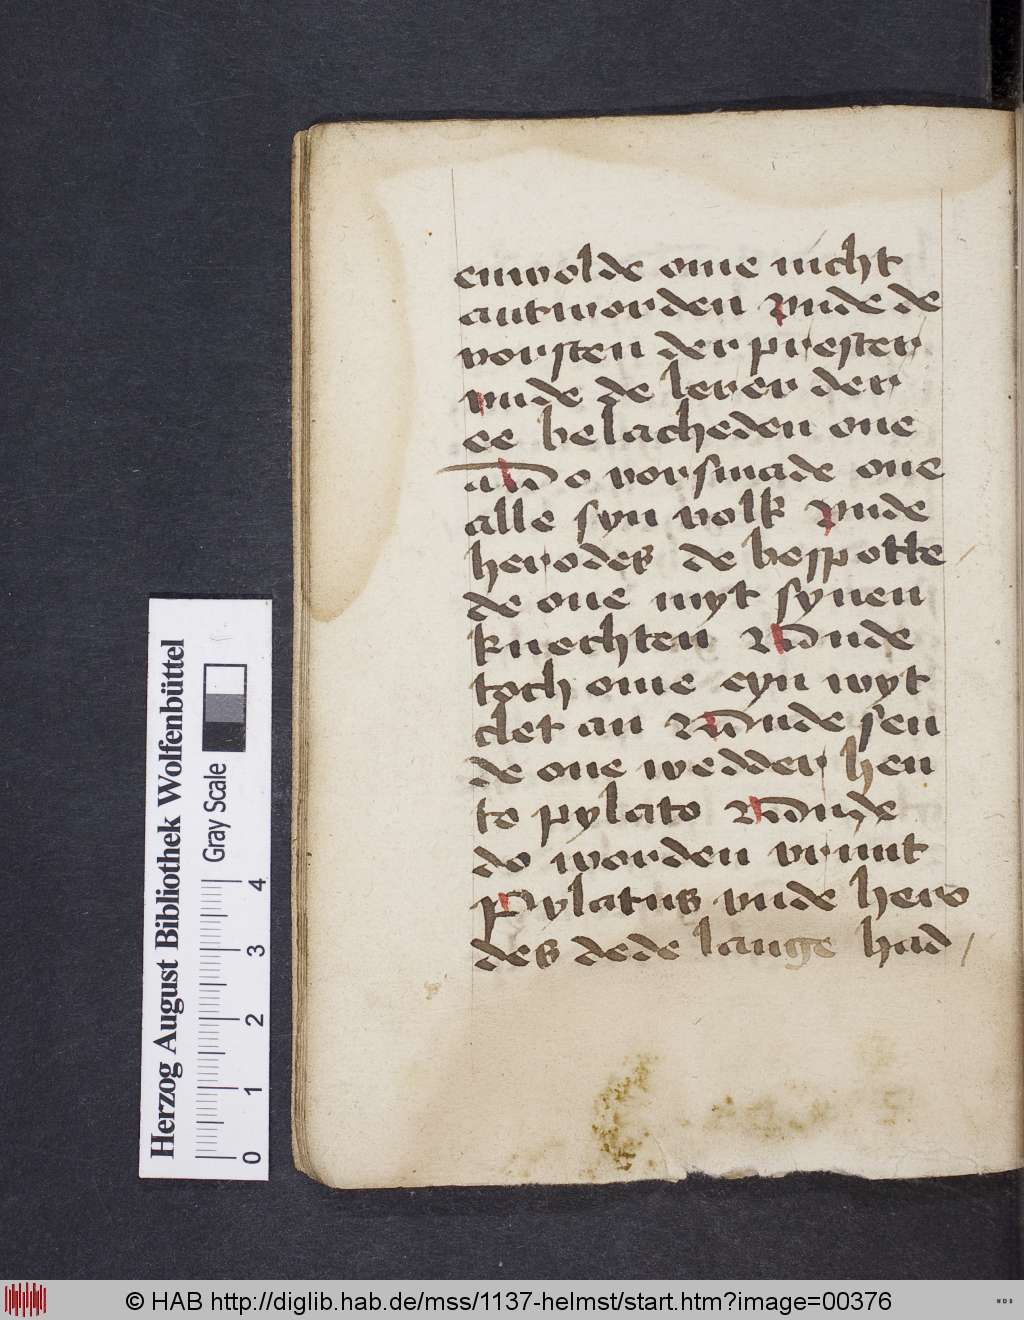 enwolde ome nicht
antworden vnde de
vorsten der prester
vnde de lerer der
ee belacheden one
also vorsmade one
alle syn volk vnde
herodes de bespotte
de one myt synen
knechten vnde
toch ome eyn wyt
clet an vnde sen
de one wedder hen
to pylato vnde
do worden vrunt
Pylatus vnde hero
des dede lange had
Herzog August Bibliothek Wolfenbüttel
Gray Scale
0 1 2 3 4
© HAB http://diglib.hab.de/mss/1137-helmst/start.htm?image=00376